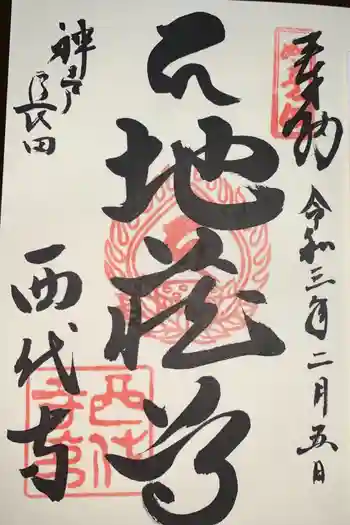 奉納
令和三年二月五日
石地蔵尊
神戸
長田
西代寺